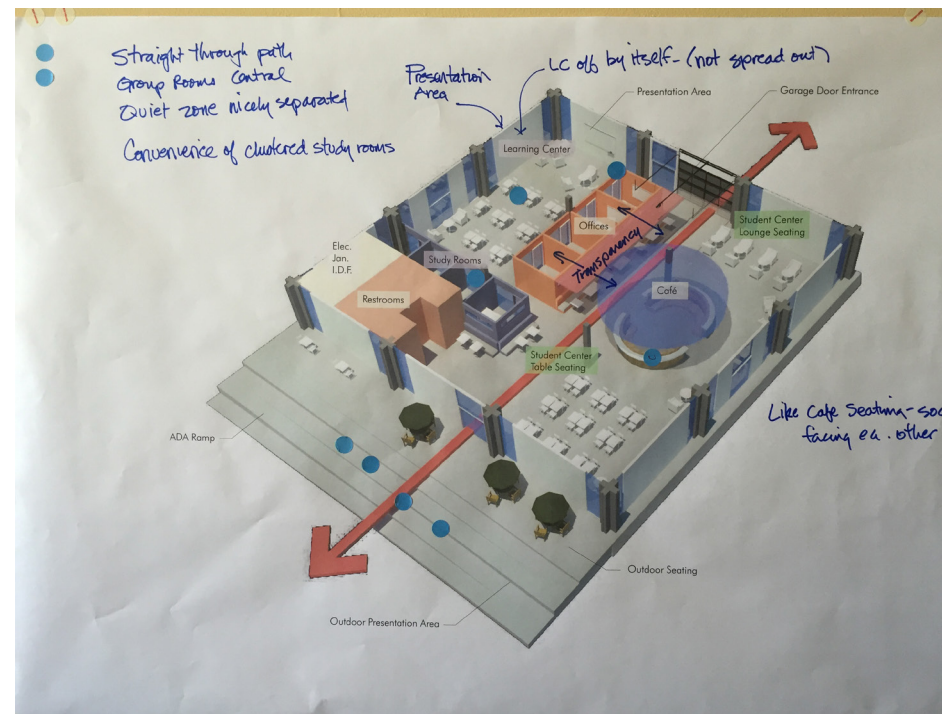 Straight through path
Group Rooms Central
Quiet zone nicely separated
Convenience of clustered study rooms
Presentation
Area
LC off by itself - (not spread out)
Presentation Area
Garage Door Entrance
Learning Center
Student Center
Lounge Seating
Offices
Transparency
Elec.
Jan.
I.D.F.
Study Rooms
Restrooms
Café
Student Center
Table Seating
Like Cafe Seating - soc
facing ea. other
ADA Ramp
Outdoor Seating
Outdoor Presentation Area